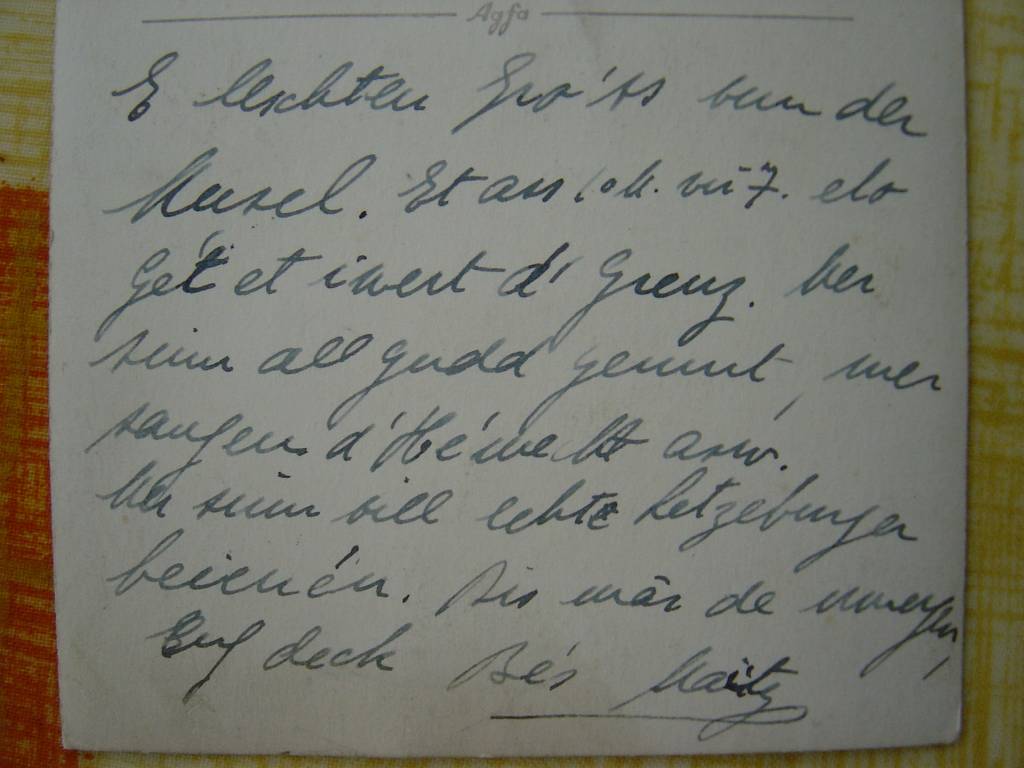 Agfa
E leschten Gro'ss vun der
Musel. Et ass 10 M. vir 7. elo
gét et iwert d' Grenz. Mer
sinn all gudd gemut, mer
sangen d' Hémecht asw.
Mer sinn vill echte Letzeburger
beienén. Bis mär de muergen,
Enf deck Bés